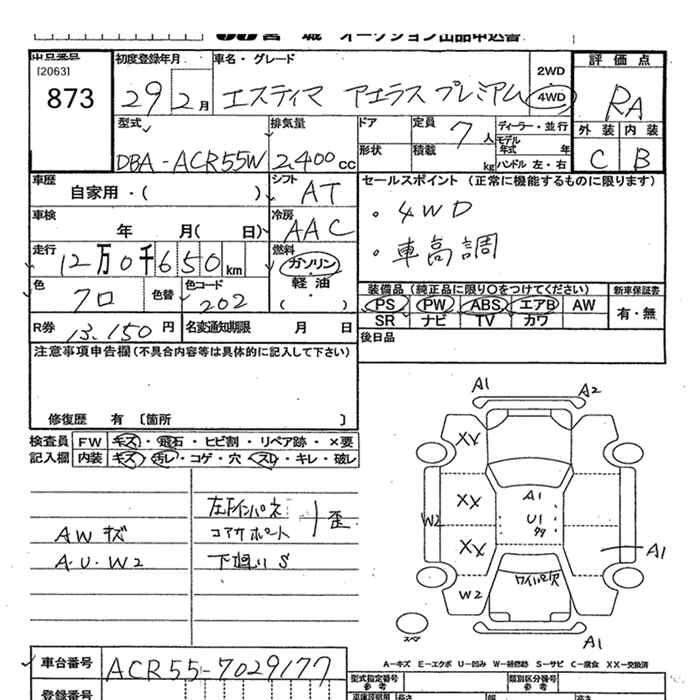 宮城 オークション出品申込書
出品番号
[2063]
873
初度登録年月
29年 2月
車名・グレード
エスティマ アエラス プレミアム
2WD
4WD
評価点
RA
外装 内装
C B
型式
DBA-ACR55W
排気量
2,400cc
ドア
定員 7人
形状
積載 kg
ディーラー・並行
モデル年式 年
ハンドル 左・右
車歴
自家用・( )
シフト
AT
セールスポイント (正常に機能するものに限ります)
・4WD
・車高調
車検
年 月( 日)
冷房
AAC
走行
12万0千650km
燃料
ガソリン・
軽油・
( )
色
クロ
色替
色コード
202
装備品(純正品に限り○をつけてください)
PS PW ABS エアB AW
SR ナビ TV カワ
新車保証書
有・無
R券 13,150円
名変通知期限 月 日
後日品
注意事項申告欄(不具合内容等は具体的に記入して下さい)
修復歴 有〔箇所 〕
検査員記入欄
FW キズ・飛石・ヒビ割・リペア跡・×要
内装 キズ・汚レ・コゲ・穴・スレ・キレ・破レ
AW キズ
A・U・W2
左下インパネ
コアサポート
歪
下廻りS
A1
A2
XX
XX
XX
W2
W2
A1
U1
ワイパー穴
A1
A1
スペア
A―キズ E―エクボ U―凹み W―補修跡 S―サビ C―腐食 XX―交換済
車台番号
ACR55-7029177
登録番号
型式指定番号
参考
類別区分番号
参考
長さ
幅
高さ